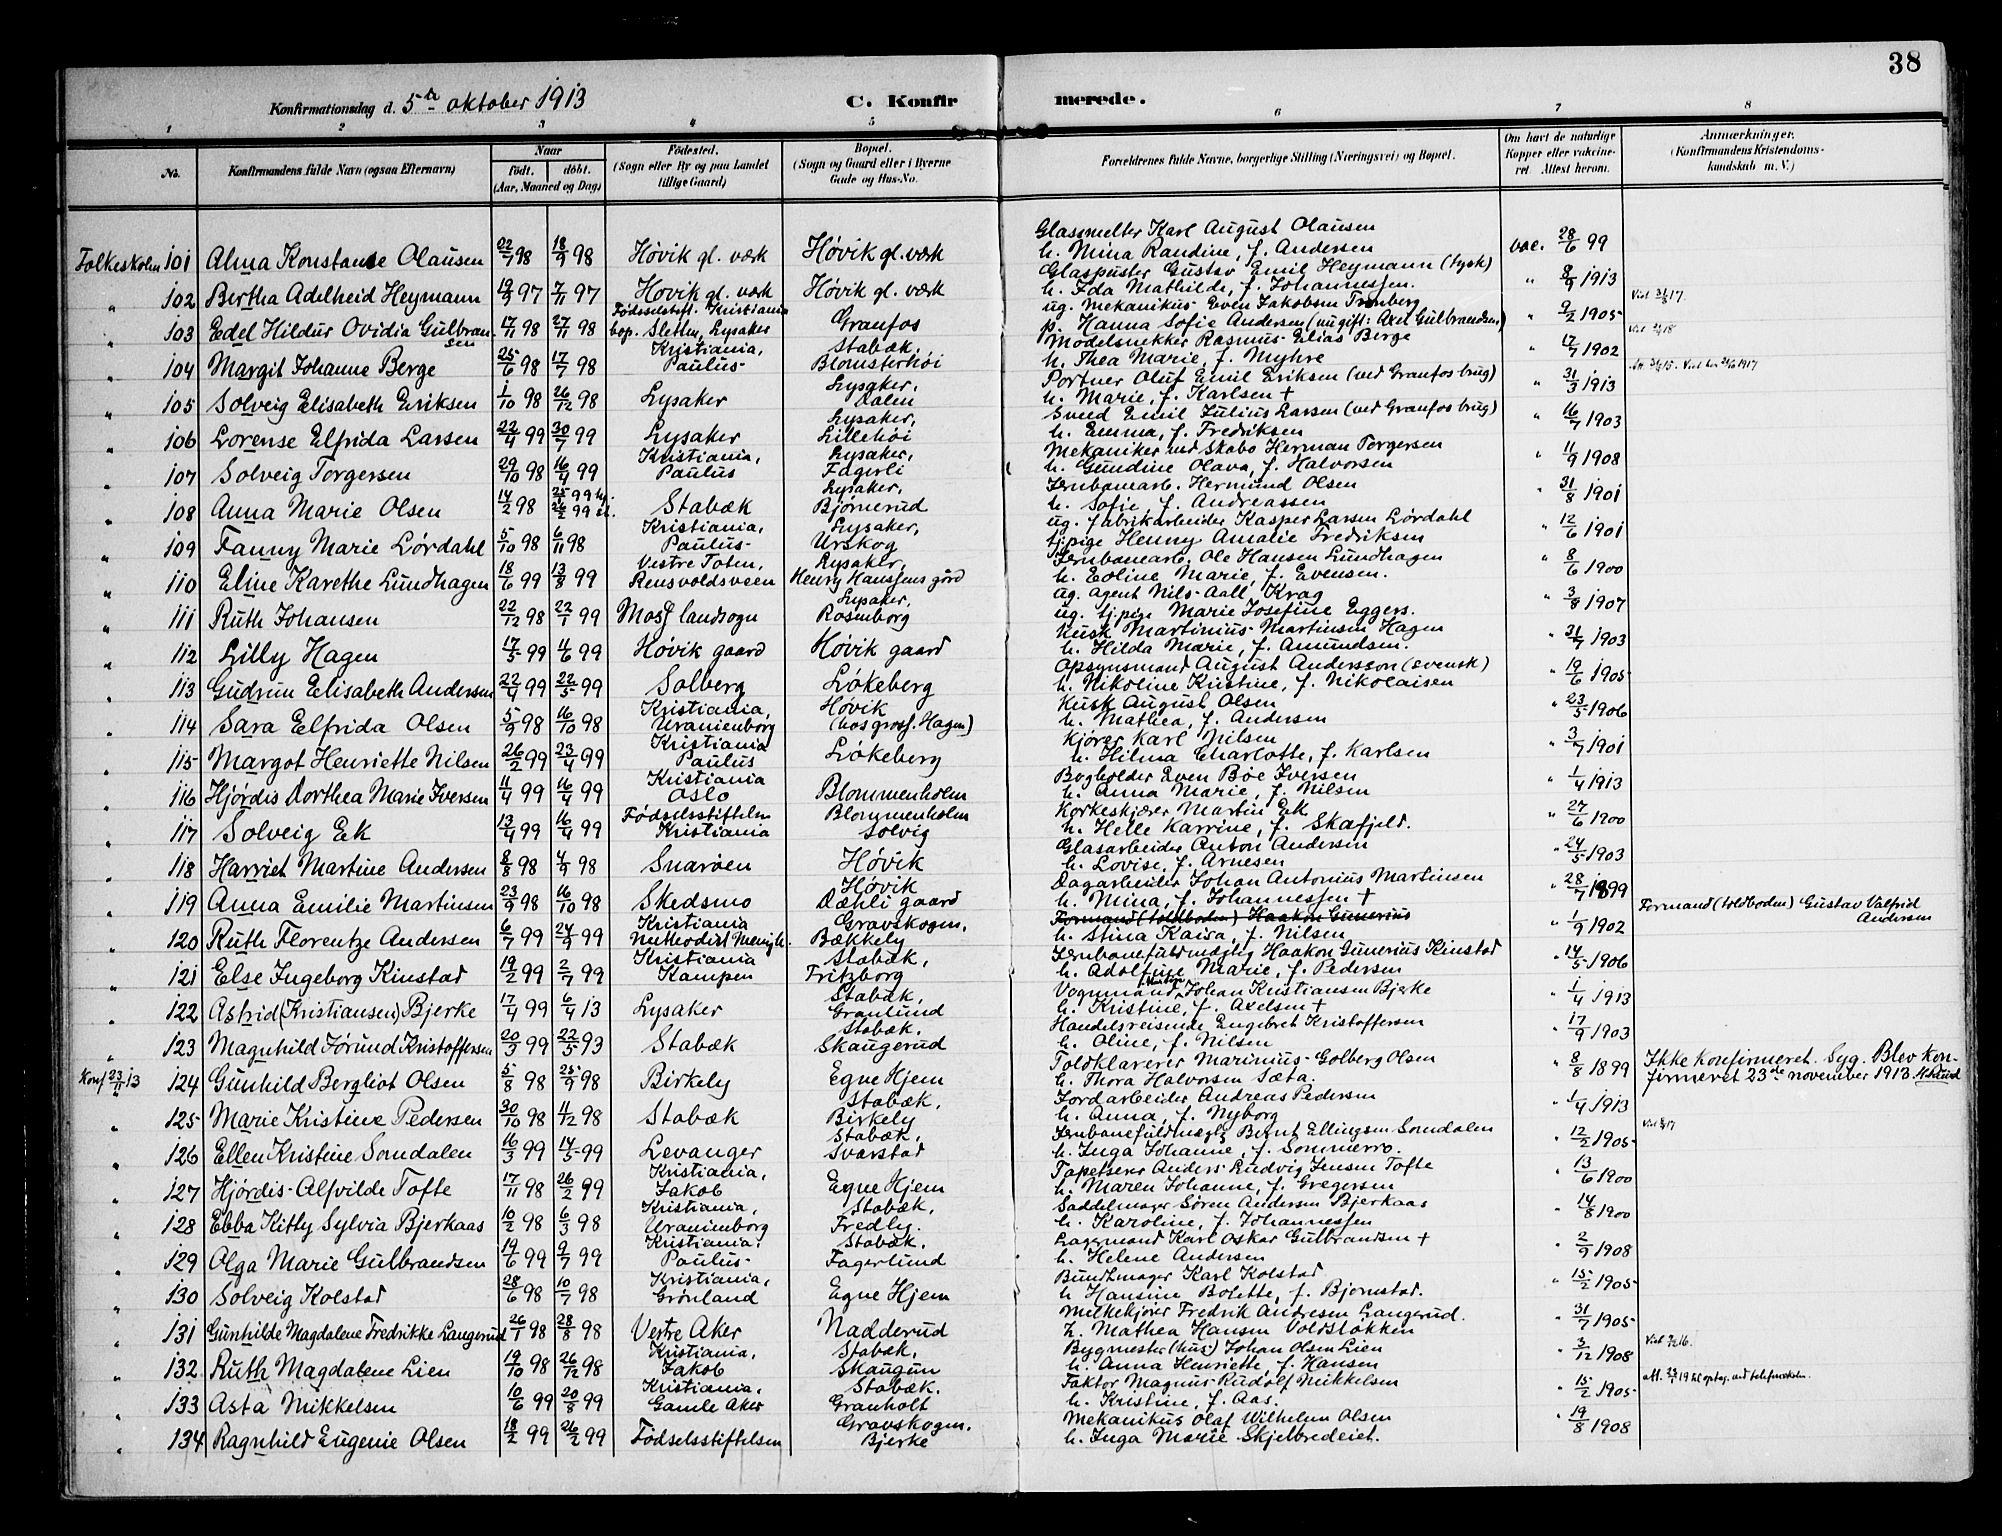 38
Konfirmationsdag d. 5te oktober 1913 C. Konfirmerede.
1 2 3 4 5 6 7 8
No. Konfirmandens fulde Navn (ogsaa Efternavn) Naar født. døbt. (Aar, Maaned og Dag) Fødested. (Sogn eller By og paa Landet tillige Gaard) Bopæl. (Sogn og Gaard eller i Byerne Gade og Hus-No. Forældrenes fulde Navne, borgerlige Stilling (Næringsvei) og Bopæl. Om havt de naturlige Kopper eller vakcineret. Attest herom. Anmærkninger. (Konfirmandens Kristendomskundskab m. V.)
Folkeskolen 101 Alma Konstanse Olausen 02/7 98 18/9 98 Høvik gl. værk Høvik gl. værk Glassmelter Karl August Olausen h. Mina Randine, f. Andersen vac. 28/6 99
" 102 Bertha Adelheid Heymann 19/9 97 7/11 97 Høvik gl. værk Høvik gl. værk Glaspuster Gustav Emil Heymann (tysk) h. Ida Mathilde, f. Johannessen. " 8/9 1913
" 103 Edel Hildur Ovidia Gulbransen 17/11 98 27/11 98 Fødselsstift. Kristiania bop. Sletten, Lysaker Granfos ug. Mekanikus Even Jakobsen Tronberg p. Hanna Sofie Andersen (nu gift: Axel Gulbrandsen) " 9/2 1905
" 104 Margit Johanne Berge 25/6 98 17/7 98 Kristiania, Paulus Stabæk, Blomsterhøi Modelsnekker Rasmus Elias Berge h. Thea Marie, f. Myhre " 17/7 1902
" 105 Solveig Elisabeth Eriksen 1/10 98 26/12 98 Lysaker Lysaker, Dalen Portner Oluf Emil Eriksen (ved Granfos brug) h. Marie, f. Karlsen + " 31/3 1913
" 106 Lorense Elfrida Larsen 22/4 99 30/7 99 Lysaker Lysaker, Lillehøi Smed Emil Julius Larsen (ved Granfos brug) h. Emma, f. Fredriksen " 16/7 1903
" 107 Solveig Torgersen 29/10 98 16/4 99 Kristiania, Paulus Lysaker, Fagerli Mekaniker ved Skabo Herman Torgersen h. Gundine Olava, f. Halvorsen " 11/9 1908
" 108 Anna Marie Olsen 14/2 98 Stabæk Lysaker, Bjørnerud Jernbanearb. Hermund Olsen h. Sofie f. Andreassen " 31/8 1901
" 109 Fanny Marie Lørdahl 5/10 98 6/11 98 Kristiania, Paulus Lysaker, Urskog ug. fabrikarbeider Kasper Larsen Lørdahl tj.pige Henny Amalie Fredriksen " 12/6 1901
" 110 Eline Karethe Lundhagen 18/6 99 13/8 99 Vestre Toten, Rensvoldsveen Lysaker, Henry Hansens gård Jernbanearb. Ole Hansen Lundhagen h. Eoline Marie, f. Evensen. " 8/6 1900
" 111 Ruth Johansen 22/12 98 22/1 99 Moss landsogn Lysaker, Rosenborg ug. Agent Nils Aall Krag ug. tj.pige Marie Josefine Eggers. " 3/8 1907
" 112 Lilly Hagen 17/5 99 4/6 99 Høvik gaard Høvik gaard Kusk Martinius Martinsen Hagen h. Hilda Marie, f. Amundsen. " 31/7 1903
" 113 Gudrun Elisabeth Andersen 22/4 99 22/5 99 Solberg Løkeberg Opsynsmand August Andersson (svensk) h. Nikoline Kristine, f. Nikolaisen " 19/6 1905
" 114 Sara Elfrida Olsen 5/9 98 16/10 98 Kristiania, Uranienborg Høvik (hos gross. Hagen) Kusk August Olsen h. Mathea, f. Andersen " 23/5 1906
" 115 Margot Henriette Nilsen 26/2 99 23/4 99 Kristiania Paulus Løkeberg Kjører Karl Nilsen h. Hilma Charlotte, f. Karlsen " 3/7 1901
" 116 Hjørdis Dorthea Marie Iversen 11/4 99 16/4 99 Kristiania Oslo Blommenholm Bogholder Even Bøe Iversen h. Anna Marie, f. Nilsen " 1/4 1913
" 117 Solveig Ek 13/4 99 16/4 99 Fødselsstiftelsen Kristiania Blommenholm Solvig Korkeskjærer Martin Ek h. Helle Karrine, f. Skafjeld. " 27/6 1900
" 118 Harriet Martine Andersen 8/8 98 4/9 98 Snarøen Høvik Glasarbeider Anton Andersen h. Lovise, f. Arnesen " 24/5 1903
" 119 Anna Emilie Martinsen 23/9 98 16/10 98 Skedsmo Høvik Dæhli gaard Dagarbeider Johan Antonius Martinsen h. Mina, f. Johannessen + " 28/7 1899
" 120 Ruth Florentze Andersen 6/7 99 24/9 99 Kristiania Methodist Menigh. Gravskogen, Bækkely Formand (toldboden) Haakon Gunerius h. Stina Kaisa, f. Nilsen " 1/9 1902 Formand (toldboden) Gustav Valfrid Andersen
" 121 Else Ingeborg Kinstad 19/2 99 2/7 99 Kristiania Kampen Stabæk, Fritzborg Jernbanefuldmægtig Haakon Gunerius Kinstad h. Adolfine Marie, f. Pedersen " 14/5 1906
" 122 Astrid (Kristiansen) Bjerke 17/4 99 6/4 13 Lysaker Stabæk, Granlund Vognmand Johan Kristiansen Bjerke h. Kristine, f. Axelsen + " 1/4 1913
" 123 Magnhild Jørund Kristoffersen 20/3 99 22/5 93 Stabæk Stabæk. Skaugerud Handelsreisende Engebret Kristoffersen h. Oline, f. Nilsen " 17/9 1903
Konf 23/11 13 124 Gunhild Bergliot Olsen 5/8 98 25/9 98 Birkely Egne Hjem Toldklarerer Marinius Golberg Olsen h. Thora Halvorsen Sæta. " 8/8 1899 Ikke konfirmeret. Syg. Blev konfirmeret 23de november 1913.
" 125 Marie Kristine Pedersen 30/10 98 4/12 98 Stabæk Stabæk. Birkely Jordarbeider Andreas Pedersen h. Anna, f. Nyborg " 1/4 1913
" 126 Ellen Kristine Somdalen 16/3 99 14/5 99 Levanger Stabæk. Svarstad Jernbanefuldmægt. Bernt Ellingsen Somdalen h. Inga Johanne, f. Sommerro. " 12/2 1905
" 127 Hjørdis Alfvilde Tofte 17/11 98 26/2 99 Kristiania, Jakob Egne Hjem Tapetserer Anders Ludvig Jensen Tofte h. Maren Johanne, f. Gregersen " 13/6 1900
" 128 Ebba Kitty Sylvia Bjerkaas 10/2 98 6/3 98 Kristiania, Uranienborg Stabæk, Fredly. Saddelmager Søren Andersen Bjerkaas h. Karoline, f. Johannessen " 14/8 1900
" 129 Olga Marie Gulbrandsen 19/6 99 9/7 99 Kristiania, Paulus Stabæk. Fagerlund Lagermand Karl Oskar Gulbrandsen + h. Helene Andersen " 2/9 1908
" 130 Solveig Kolstad 28/6 98 10/7 98 Kristiania, Grønland Egne Hjem Bundtmager Karl Kolstad h. Hansine Bolette, f. Bjørnstad. " 15/2 1905
" 131 Gunhilde Magdalene Fredrikke Langerud 26/1 98 28/8 98 Vestre Aker Nadderud Melkekjører Fredrik Andresen Langerud. h. Mathea Hansen Voldstokken " 31/7 1905
" 132 Ruth Magdalene Lien 19/10 98 26/12 98 Kristiania, Jakob Stabæk. Skaugun Bygmester (hus) Johan Olsen Lien h. Anna Henriette, f. Hansen " 3/12 1908
" 133 Asta Mikkelsen 10/6 99 20/8 99 Kristiania, Gamle Aker Stabæk. Granholt Faktor Magnus Rudolf Mikkelsen h. Kristine, f. Aas. " 15/2 1905
" 134 Ragnhild Eugenie Olsen 18/2 99 26/2 99 Fødselsstiftelsen Gravskogen. Bjerke Mekanikus Olaf Wilhelm Olsen h. Inga Marie Skjelbredeiet. " 19/8 1908